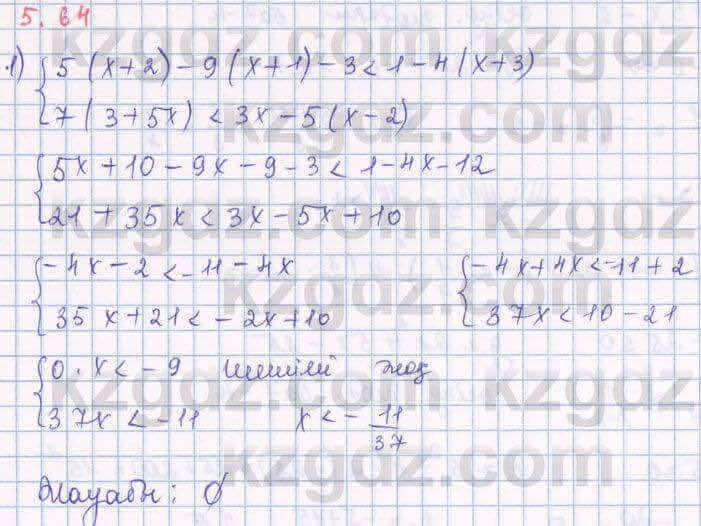 5.64
1) { 5(x+2)-9(x+1)-3<1-4(x+3)
7(3+5x)<3x-5(x-2)
{ 5x+10-9x-9-3<1-4x-12
21+35x<3x-5x+10
{ -4x-2<-11-4x { -4x+4x<-11+2
35x+21<-2x+10 37x<10-21
{ 0·x<-9 шешімі жоқ
37x<-11 x<-11/37
Жауабы: ∅
kzgdz.com